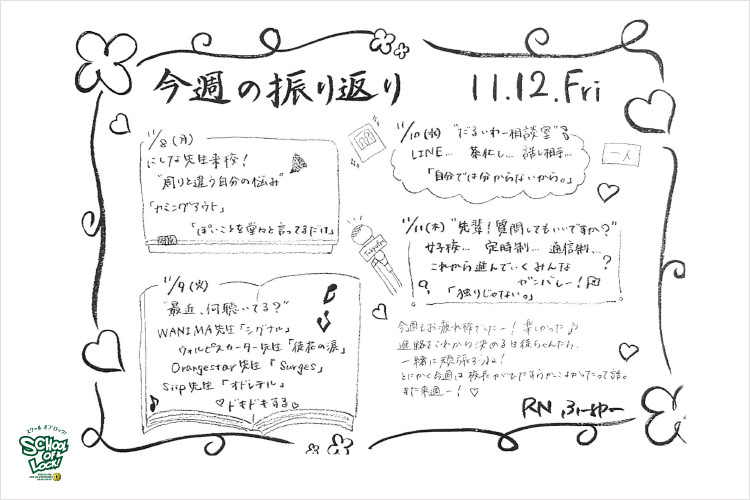 今週の振り返り 11.12.Fri
11/8(月)
にしな先生来校!
"周りと違う自分の悩み"
「カミングアウト」
「ぽいことを堂々と言ってるだけ」
11/9(火)
"最近、何聴いてる?"
WANIMA先生「シグナル」
ウォルピスカーター先生「徒花の涙」
Orangestar先生「Surges」
Siip先生「オドレテル」
♡ドキドキする♡
11/10(水) "だるいわー相談室"
LINE... 茶化し... 話し相手...
「自分では分からないから。」
一人
11/11(木) "先輩!質問してもいいですか?"
女子校... 定時制... 通信制...
これから進んでいくみんな
ガンバレー!
「独りじゃない。」
今週もお疲れ様でしたー!楽しかった♪
進路をこれから決める生徒ちゃんたち、
一緒に頑張ろうね!
とにかく今週は校長がひたすらかっこよかったって話。
また来週ー!♡
RN ふーゆー
スクール オブ ロック!
SCHOOL
OF
LOCK!